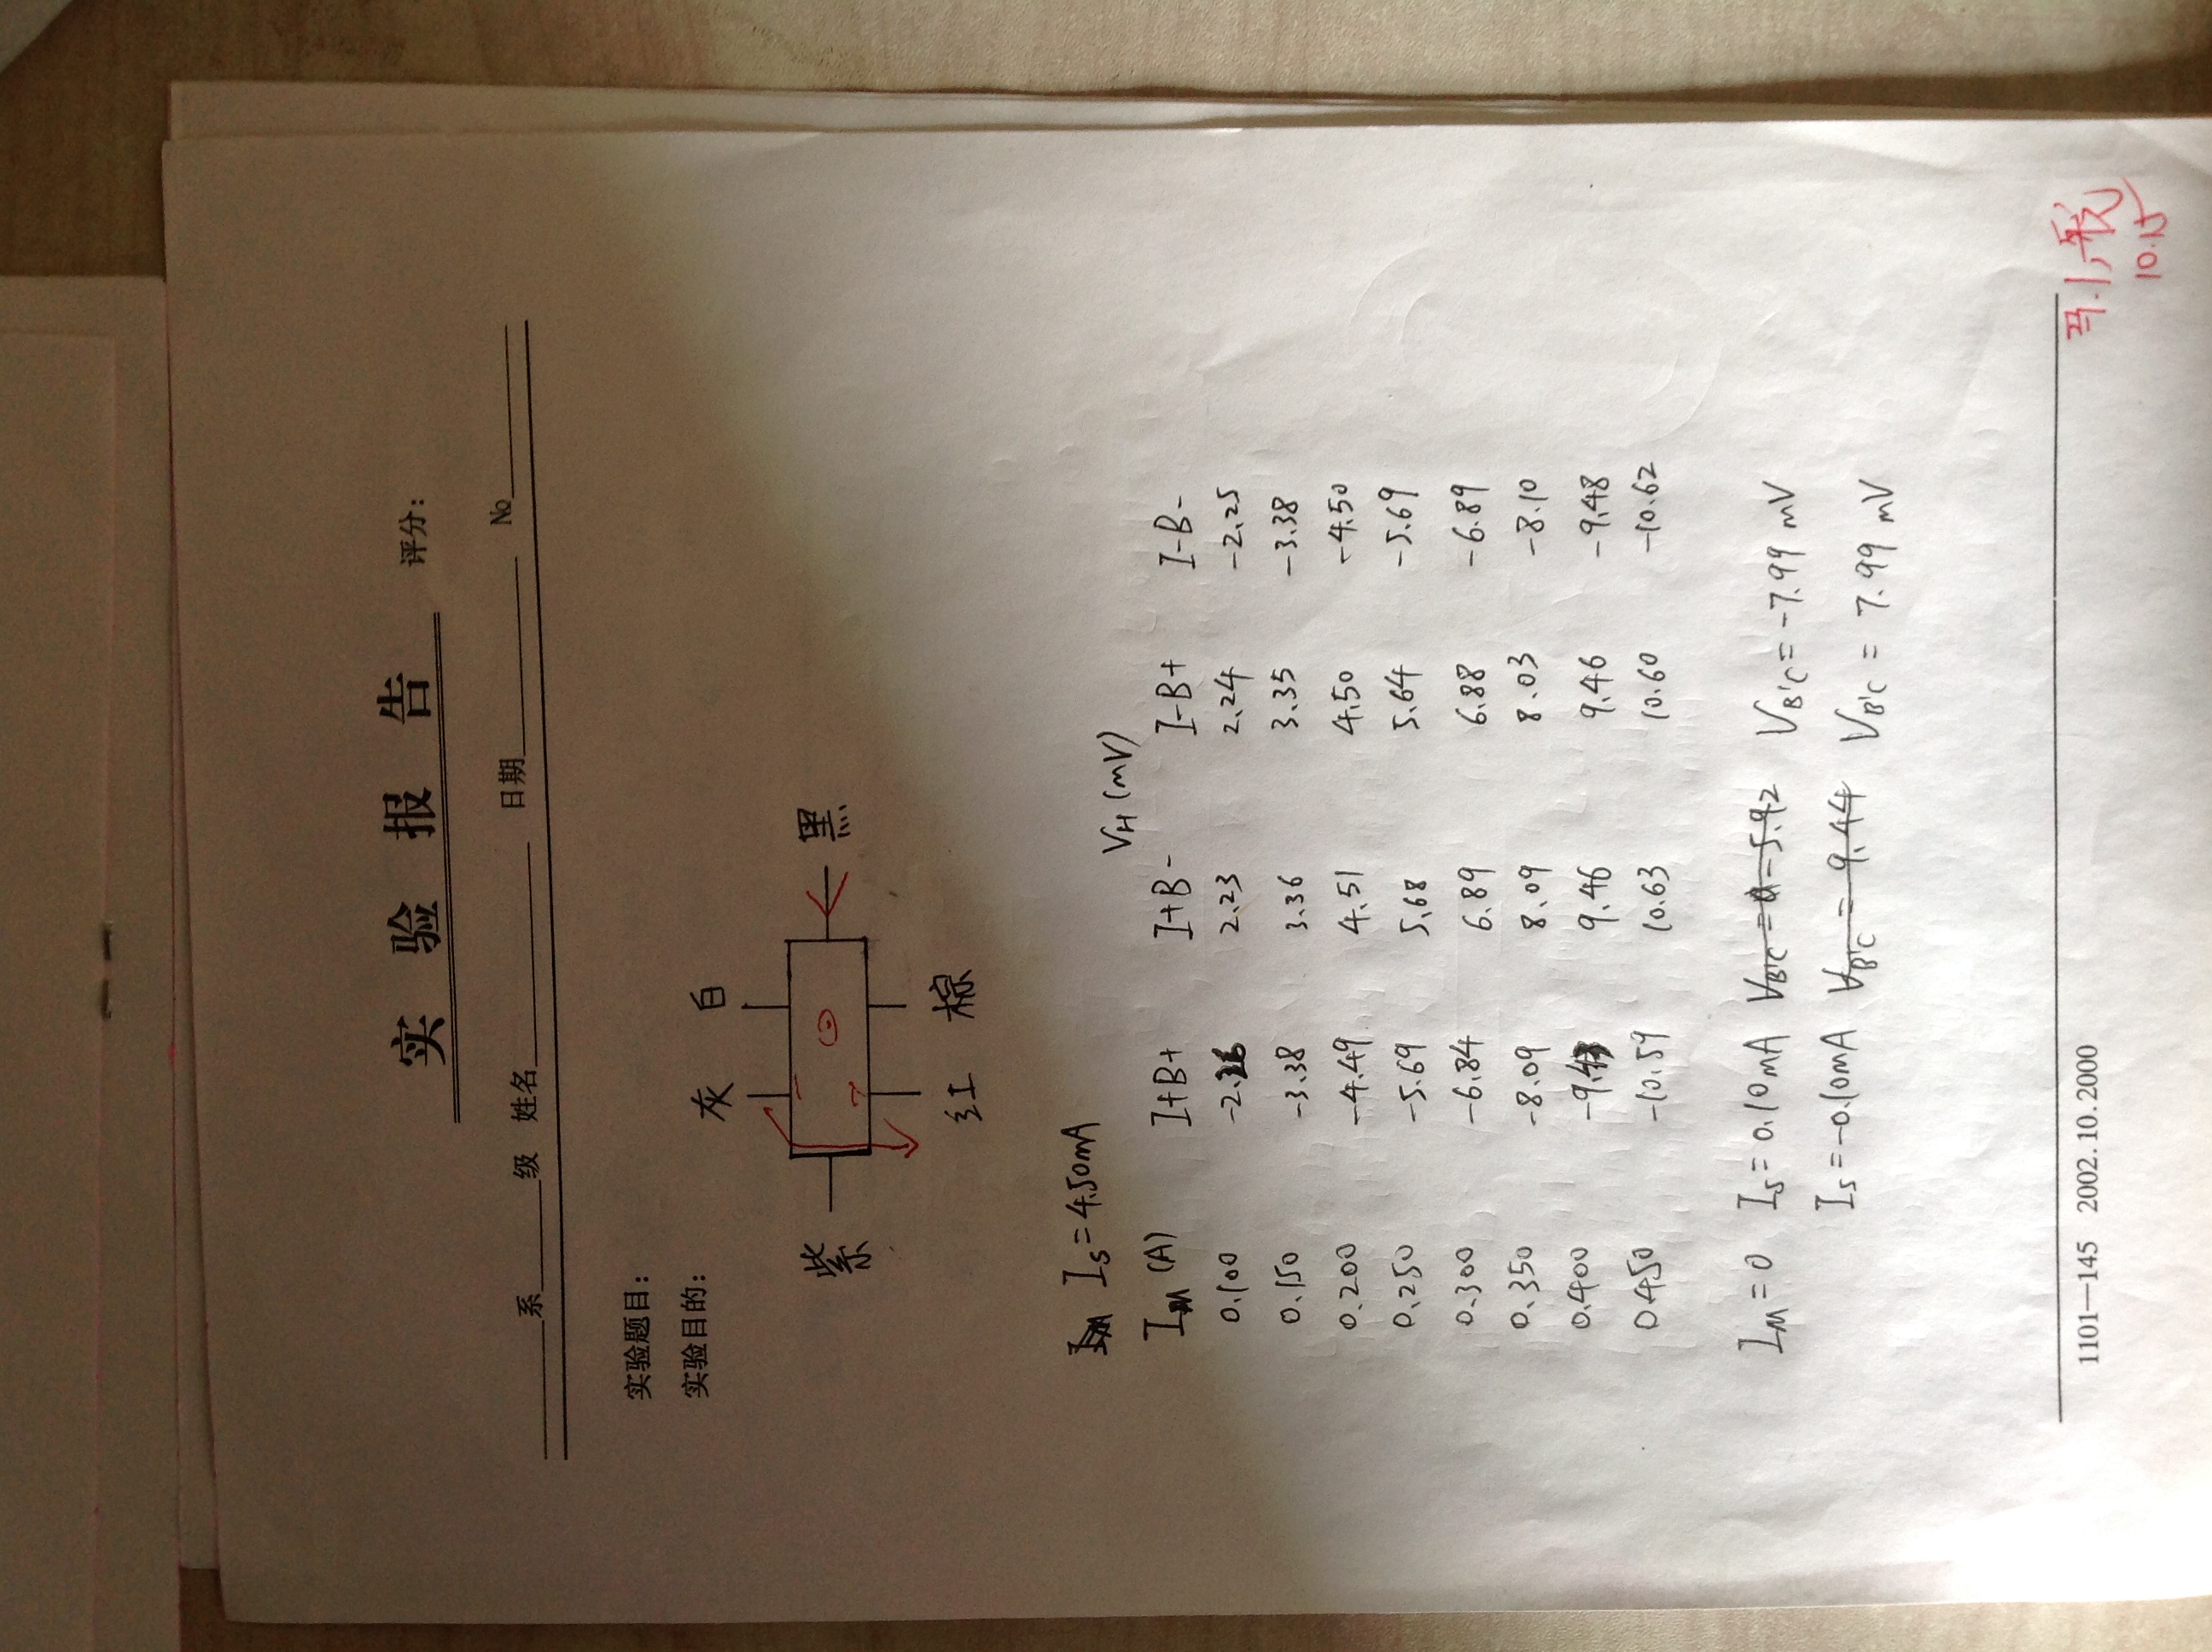 实 验 报 告 评分:
系 级 姓名 日期 No
实验题目:
实验目的:
灰 白
紫 黑
红 棕
I_S = 4.50mA
V_H (mV)
I_M (A) I+B+ I+B- I-B+ I-B-
0.100 -2.26 2.23 2.24 -2.25
0.150 -3.38 3.36 3.35 -3.38
0.200 -4.49 4.51 4.50 -4.50
0.250 -5.69 5.68 5.64 -5.69
0.300 -6.84 6.89 6.88 -6.89
0.350 -8.09 8.09 8.03 -8.10
0.400 -9.43 9.46 9.46 -9.48
0.450 -10.59 10.63 10.60 -10.62
I_M = 0 I_S = 0.10mA V_B'C = -5.92 V_B'C = -7.99 mV
I_S = -0.10mA V_B'C = 9.44 V_B'C = 7.99 mV
1101—145 2002.10.2000
10.15